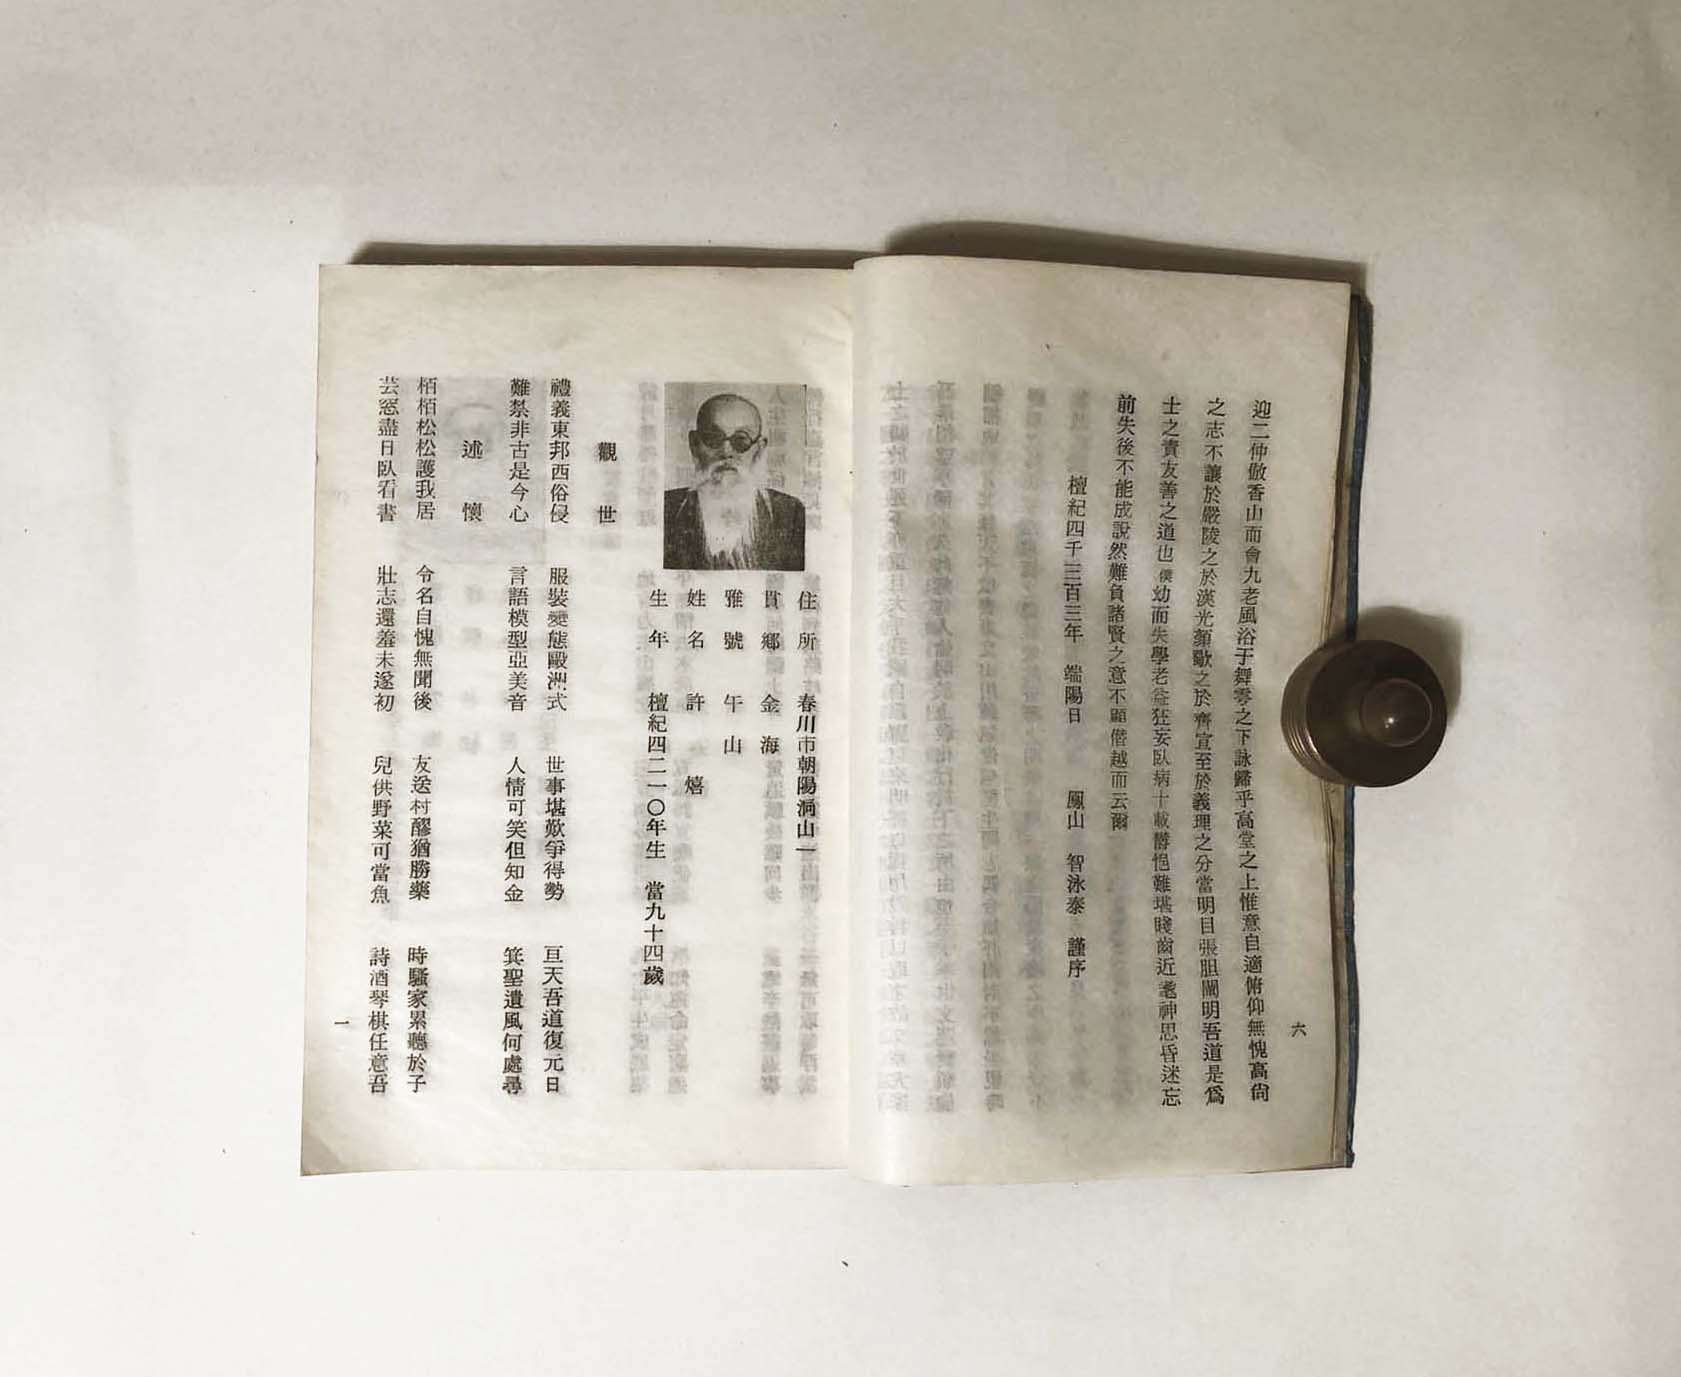 迎二仲倣香山而會九老風浴于舞雩之下詠歸乎高堂之上惟意自適俯仰無愧高尙
之志不讓於嚴陵之於漢光顏歜之於齊宣至於義理之分當明目張胆闡明吾道是爲
士之責友善之道也僕幼而失學老益狂妄臥病十載欝悒難堪賤齒近耄神思昏迷忘
前失後不能成說然難負諸賢之意不顧僭越而云爾
檀紀四千三百三年 端陽日 鳳山 智泳泰 謹序
六
住所 春川市朝陽洞山一
貫鄕 金海
雅號 午山
姓名 許熺
生年 檀紀四二一〇年生 當九十四歲
觀世
禮義東邦西俗侵 服裝變態歐洲式 世事堪歎爭得勢 亘天吾道復元日
難禁非古是今心 言語模型亞美音 人情可笑但知金 箕聖遺風何處尋
述懷
栢栢松松護我居 令名自愧無聞後 友送村醪猶勝藥 時騷家累聽於子
芸窓盡日臥看書 壯志還羞未遂初 兒供野菜可當魚 詩酒琴棋任意吾
一